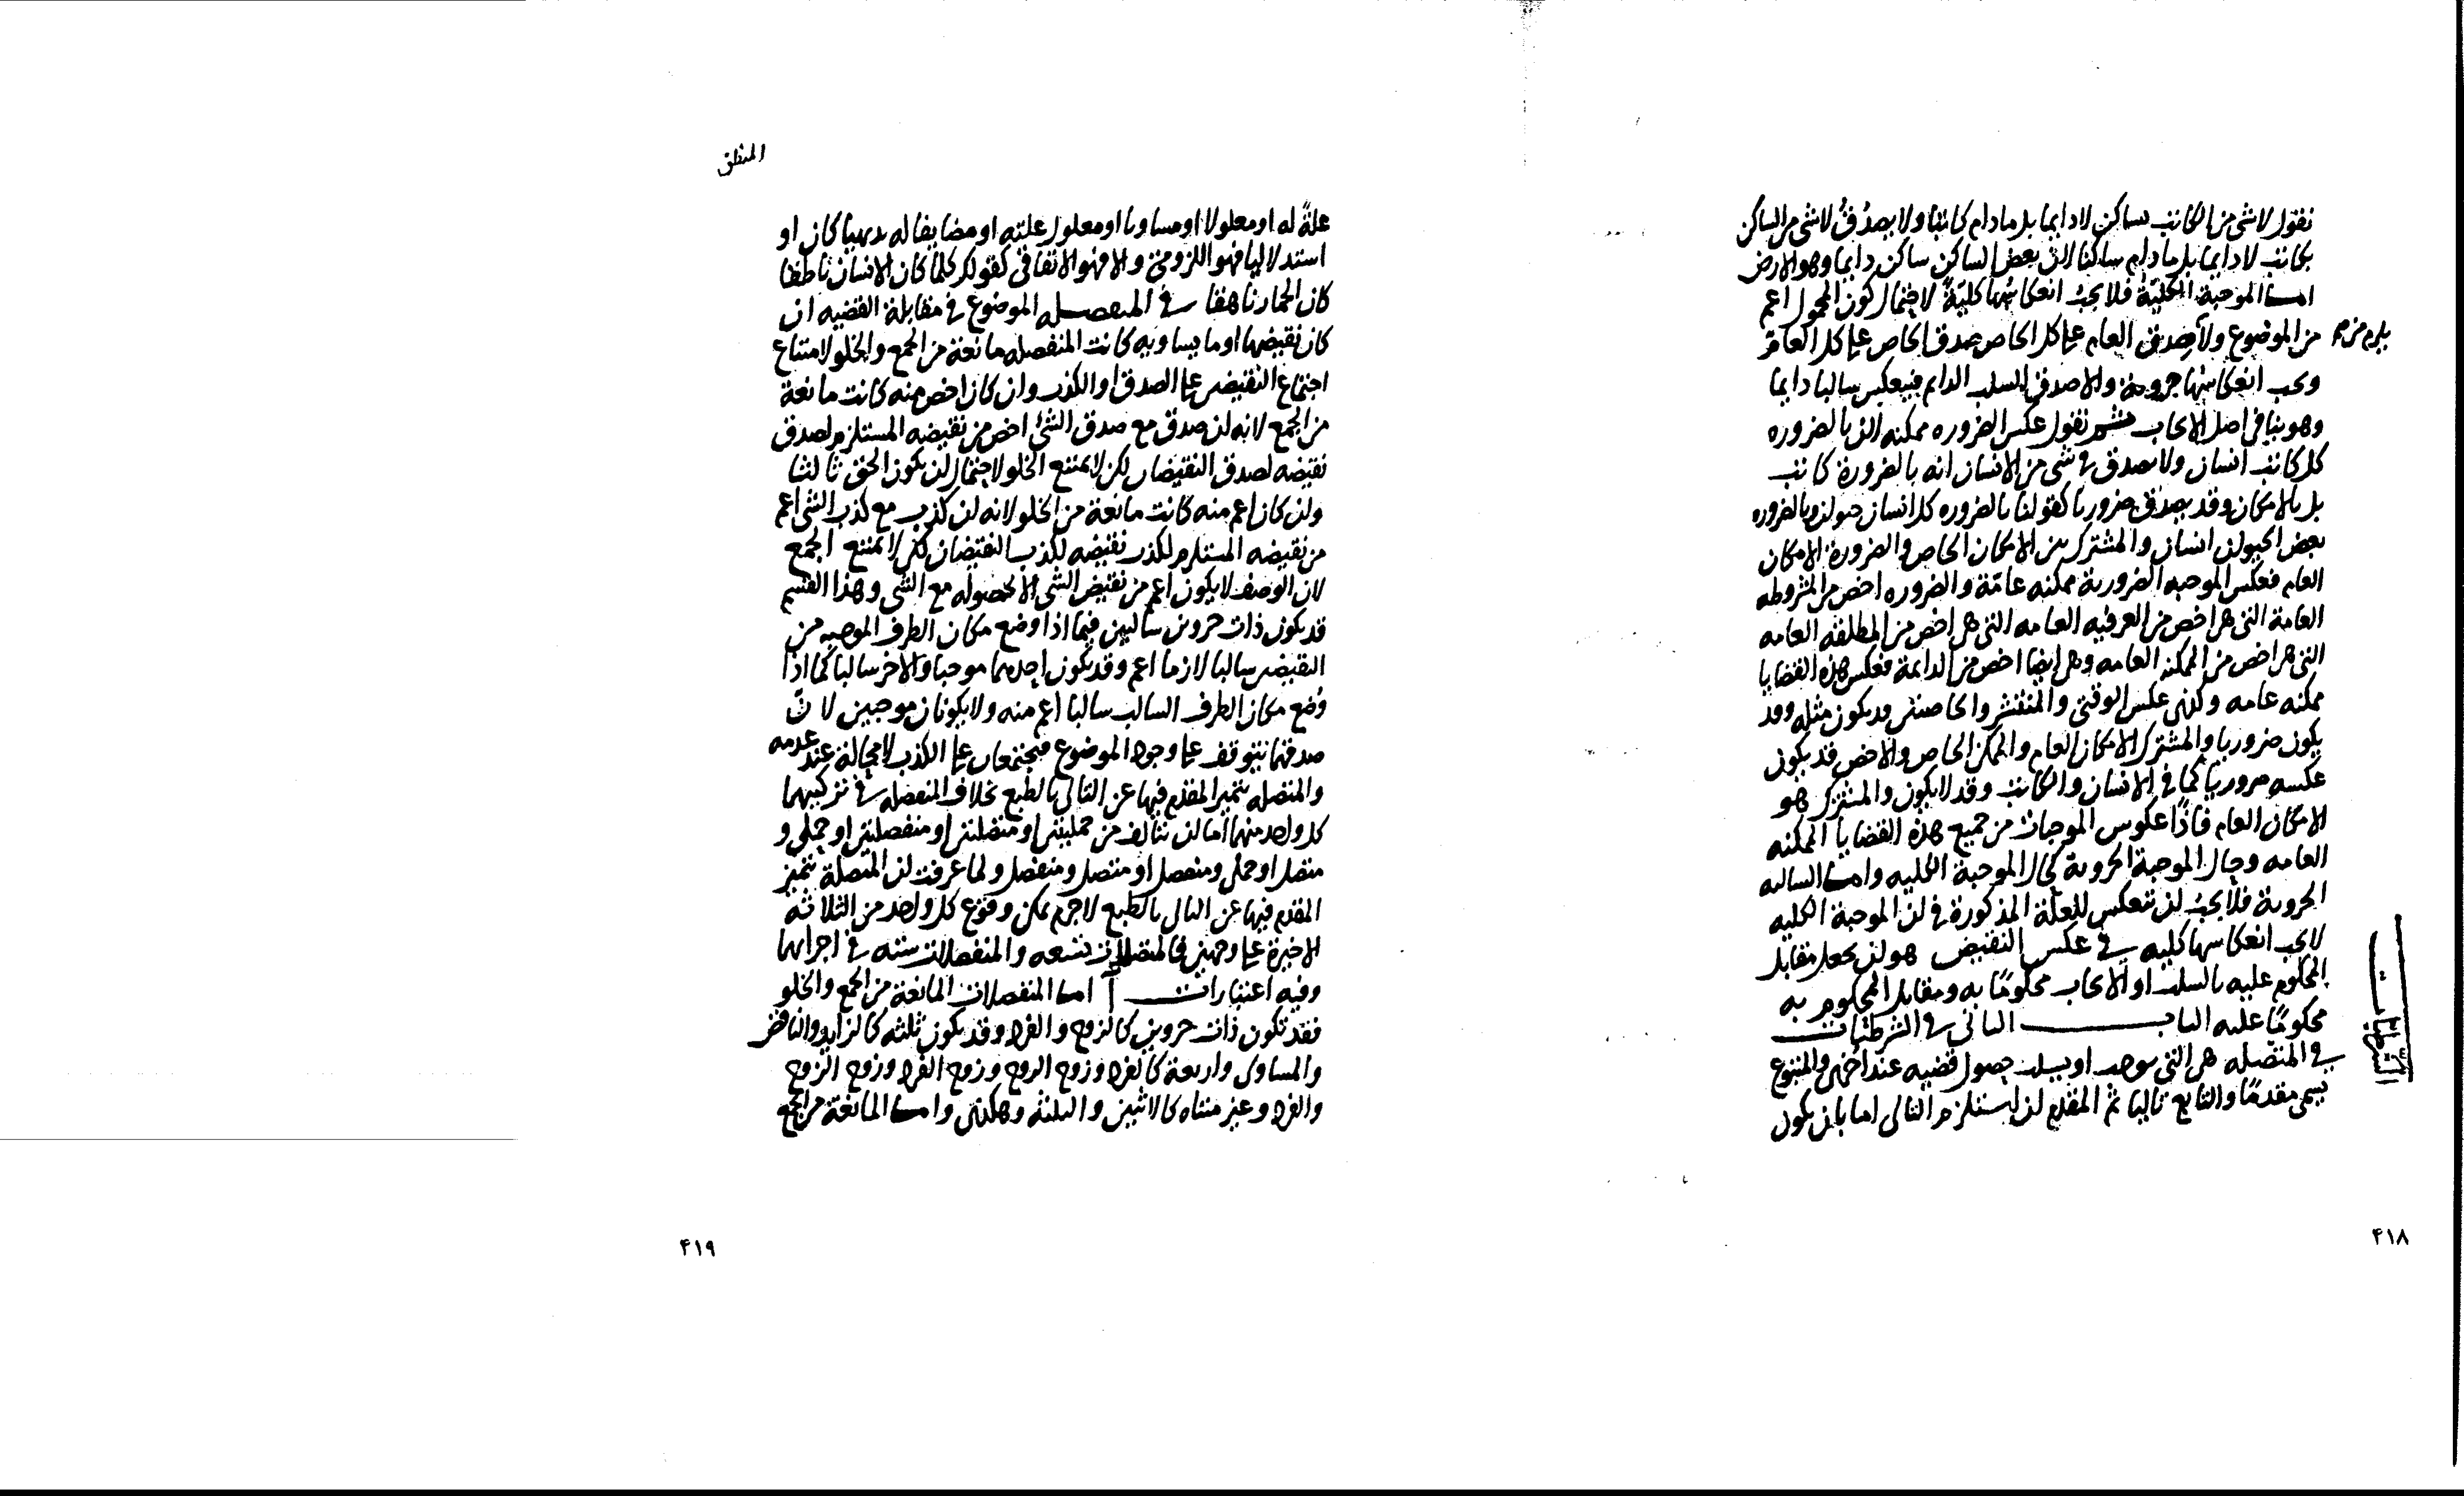 نقول لا شئ من الكاتب بساكن لا دايما بل ما دام كاتبا ولا يصدق لا شئ من الساكن
بكاتب لا دايما بل ما دام ساكنا لان بعض الساكن ساكن دايما وهو الارض
اما الموجبة الكلية فلا يجب انعكاسها كلية لاحتمال كون المحمول اعم
من الموضوع ولا صدق العام على كل الخاص صدق الخاص على كل العام
يلزم من
ويجب انعكاسها جزوية والا صدق السلب الدايم فينعكس سالبا دايما
وهو ينافى اصل الايجاب ثم نقول عكس الضروره ممكنه لان بالضروره
كل كاتب انسان ولا يصدق فى شئ من الانسان انه بالضرورة كاتب
بل بالامكان وقد يصدق ضروريا كقولنا بالضروره كل انسان حيوان وبالضروره
بعض الحيوان انسان والمشترك بين الامكان الخاص والضرورة الامكان
العام فعكس الموجبه الضرورية ممكنه عامة والضروره اخص من المشروطه
العامة التى هى اخص من العرفيه العامه التى هى اخص من المطلقه العامه
التى هى اخص من الممكنه العامه وهى ايضا اخص من الدايمة فعكس هذه القضايا
ممكنه عامه وكذى عكس الوقتى والمنتشر والخاصتين قد يكون مثله وقد
يكون ضروريا والمشترك الامكان العام والممكن الخاص والاخص قد يكون
عكسه ضروريا كما فى الانسان والكاتب وقد لا يكون والمشترك هو
الامكان العام فاذا عكوس الموجبات من جميع هذه القضايا الممكنه
العامه وحال الموجبة الجزوية كحال الموجبة الكليه واما السالبه
الجزوية فلا يجب ان تنعكس للعلة المذكورة فى ان الموجبة الكليه
لا يجب انعكاسها كليه فى عكس النقيض هو ان يجعل مقابل
المحكوم عليه بالسلب او الايجاب محكوما به ومقابل المحكوم به
محكوما عليه الباب الثانى فى الشرطيات
الشرطيات
فى المتصله هى التى يوجب او يسلب حصول قضيه عند اخرى والمتبوع
يسمى مقدما والتابع تاليا ثم المقدم ان استلزم التالى اما بان يكون
۴۱۸
المنطق
علة له او معلولا او مساويا او معلول علته او مضايفا له بديهيا كان او
استدلاليا فهو اللزومى والا فهو الاتفاقى كقولك كلما كان الانسان ناطقا
كان الحمار ناهقا فى المنفصله الموضوع فى مقابلة القضيه ان
كان نقيضها او ما يساويه كانت المنفصله مانعة من الجمع والخلو لامتناع
اجتماع النقيضين على الصدق او الكذب وان كان اخص منه كانت مانعة
من الجمع لانه لن صدق مع صدق الشئ اخص من نقيضه المستلزم لصدق
نقيضه لصدق النقيضان لكن لا يمتنع الخلو لاحتمال ان يكون الحق ثالثا
وان كان اعم منه كانت مانعة من الخلو لانه ان كذب مع كذب الشئ اعم
من نقيضه المستلزم لكذب نقيضه لكذب النقيضان لكن لا يمتنع الجمع
لان الوصف لا يكون اعم من نقيض الشئ الا لحصوله مع الشئ وهذا القسم
قد يكون ذات جزوين سالبين فيما اذا وضع مكان الطرف الموجبه من
النقيضين سالبا لازما اعم وقد يكون احدهما موجبا والاخر سالبا كما اذا
وضع مكان الطرف السالب سالبا اعم منه ولا يكونان موجبين لان
صدقهما يتوقف على وجود الموضوع فيجتمعان على الكذب لا محالة عند عدمه
والمتصله يتميز المقدم فيها عن التالى بالطبع بخلاف المنفصله فى تركيبهما
كل واحد منهما اما ان تتالف من حمليتين او متصلتين او منفصلتين او حملى و
متصل او حملى ومنفصل او متصل ومنفصل ولما عرفت ان المتصلة يتميز
المقدم فيها عن التالى بالطبع لا جرم يمكن وقوع كل واحد من الثلاثه
الاخيرة على وجهين فالمتصلات تسعه والمنفصلات سته فى اجزايهما
وفيه اعتبارات آ اما المنفصلات المانعة من الجمع والخلو
فقد تكون ذات جزوين كالزوج والفرد وقد يكون ثلثه كالزايد والناقص
والمساوى واربعة كالفرد وزوج الزوج وزوج الفرد وزوج الزوج
والفرد وغير متناه كالاثنين والثلثه وهكذى واما المانعة من الجمع
۴۱۹